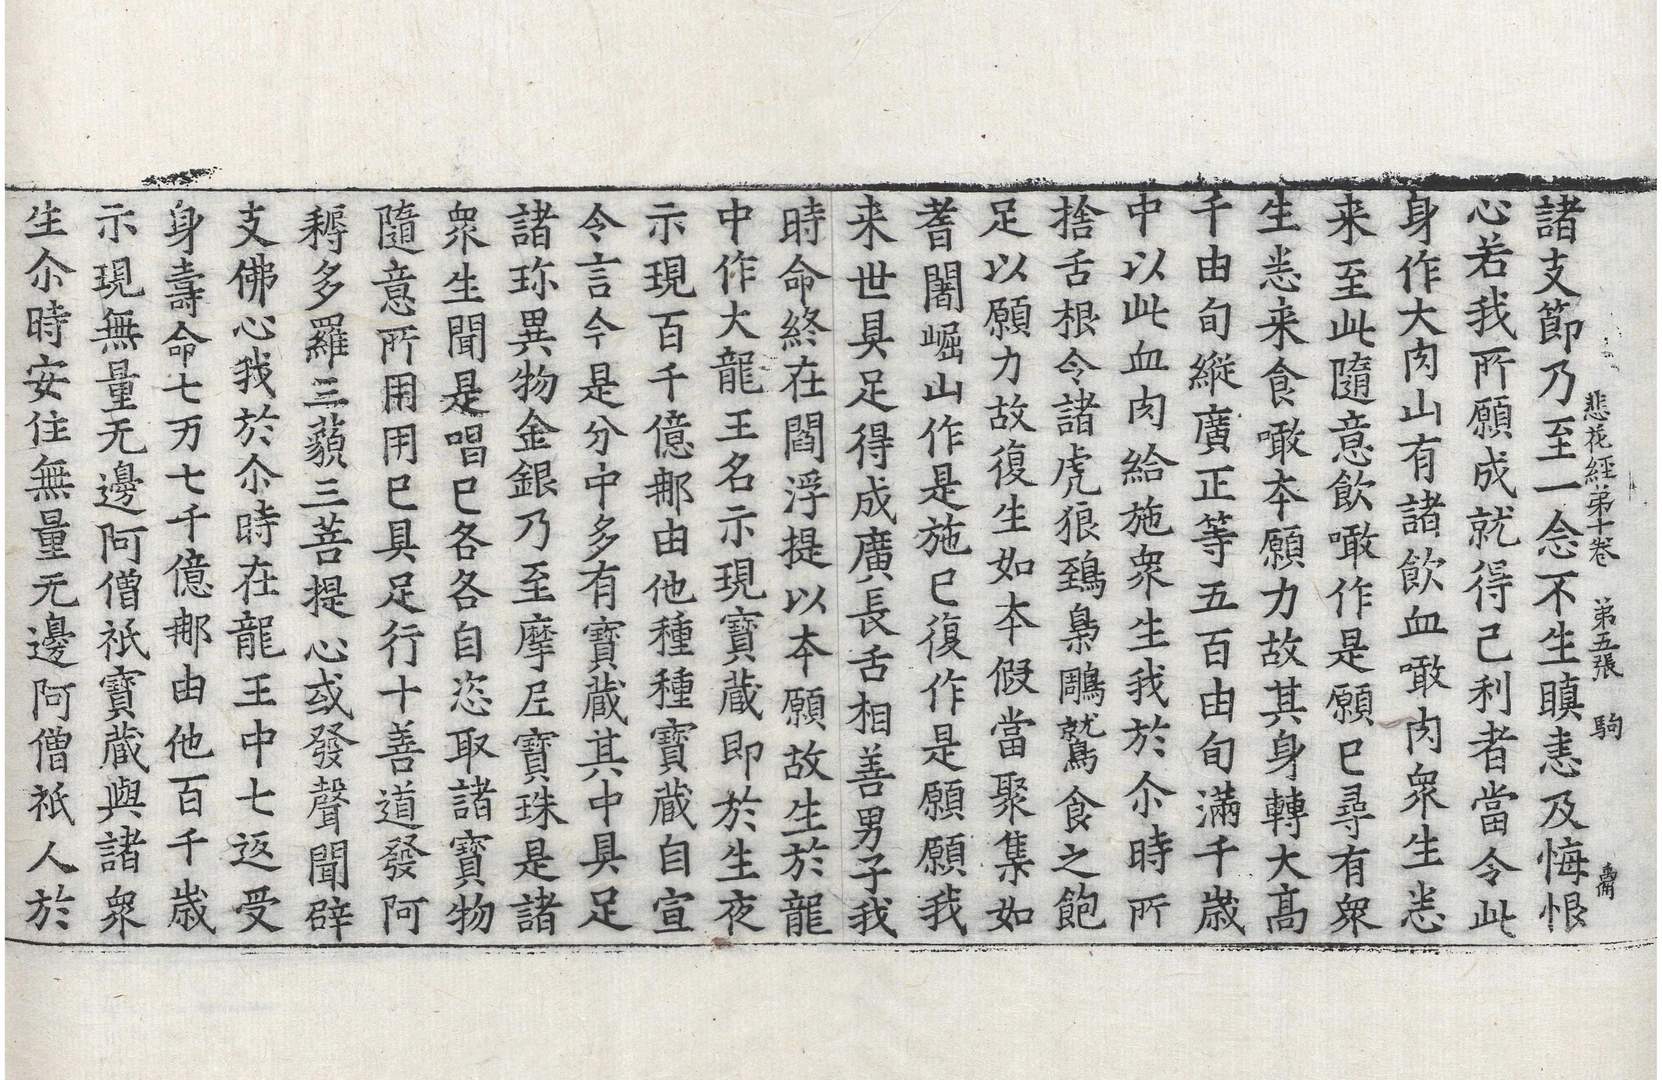 悲花經第十卷 第五張 駒
諸支節乃至一念不生瞋恚及悔恨
心若我所願成就得己利者當令此
身作大肉山有諸飲血噉肉衆生悉
来至此隨意飲噉作是願已尋有衆
生悉来食噉本願力故其身轉大高
千由旬縱廣正等五百由旬滿千歲
中以此血肉給施衆生我於尒時所
捨舌根令諸虎狼鵄梟鵰鷲食之飽
足以願力故復生如本假當聚集如
耆闍崛山作是施已復作是願願我
来世具足得成廣長舌相善男子我
時命終在閻浮提以本願故生於龍
中作大龍王名示現寶藏即於生夜
示現百千億那由他種種寶藏自宣
令言今是分中多有寶藏其中具足
諸珎異物金銀乃至摩尼寶珠是諸
衆生聞是唱已各各自恣取諸寶物
隨意所用用已具足行十善道發阿
耨多羅三藐三菩提心或發聲聞辟
支佛心我於尒時在龍王中七返受
身壽命七万七千億那由他百千歲
示現無量无邊阿僧祇寶藏與諸衆
生尒時安住無量无邊阿僧祇人於